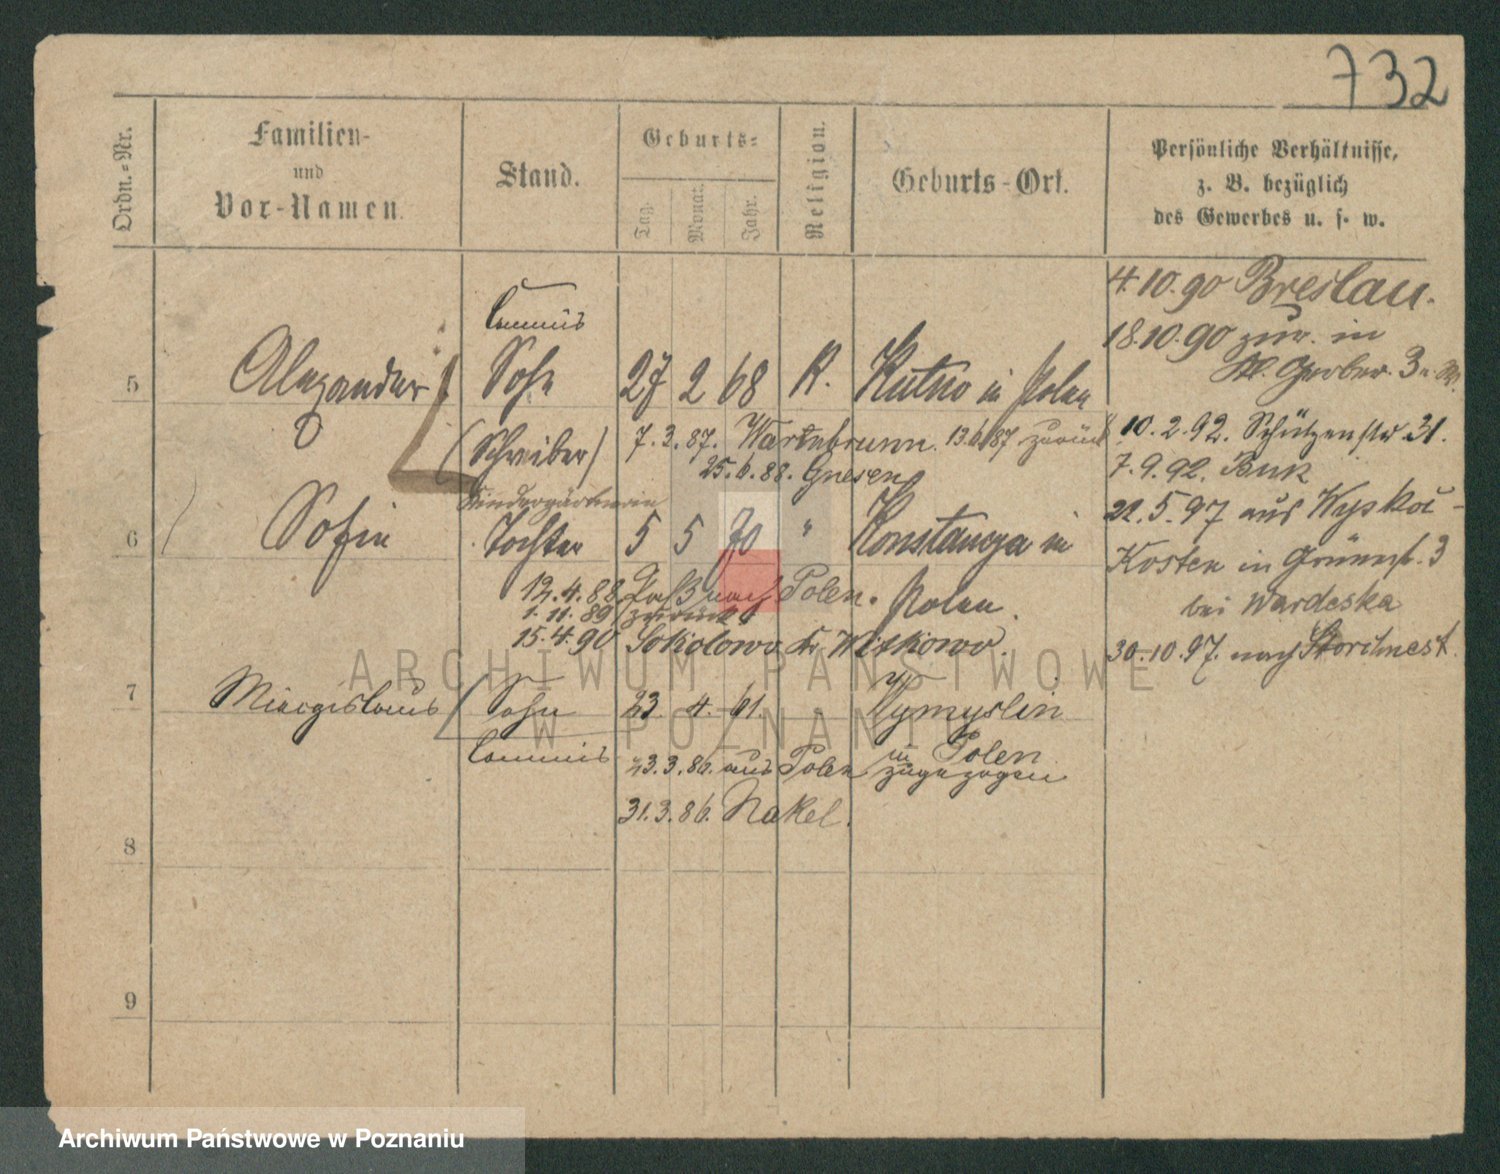 732
Ordn.-Nr.
Familien-
und
Vor-Namen.
Stand.
Geburts-
Tag.
Monat.
Jahr.
Religion.
Geburts-Ort.
Persönliche Verhältnisse,
z. B. bezüglich
des Gewerbes u. s. w.
4.10.90 Breslau.
18.10.90 zur. in
Gerber. 3
Commis
5 Alexander Sohn 27 2 68 K. Kutno in Polen
(Schreiber) 7.3.87. Warmbrunn. 13.6.87 zurück
25.6.88. Gnesen
10.2.92. Schützenstr 31.
7.9.92. Buk
Kindergärtnerin
6 Sofie Tochter 5 5 70 " Konstancya in
Polen.
22.5.97 aus
Kosten in Grünest. 3
bei Wardeska
30.10.97. nach Storchnest.
12.4.88 Paß nach Polen.
1.11.89 zurück
15.4.90 Sokolowo Kr. Witkowo.
7 Miecislaus Sohn 23. 4. 61. Wymyslin
in Polen
Commis 23.3.86. aus Polen zugezogen
31.3.86. Nakel.
8
9
ARCHIWUM PAŃSTWOWE
W POZNANIU
Archiwum Państwowe w Poznaniu